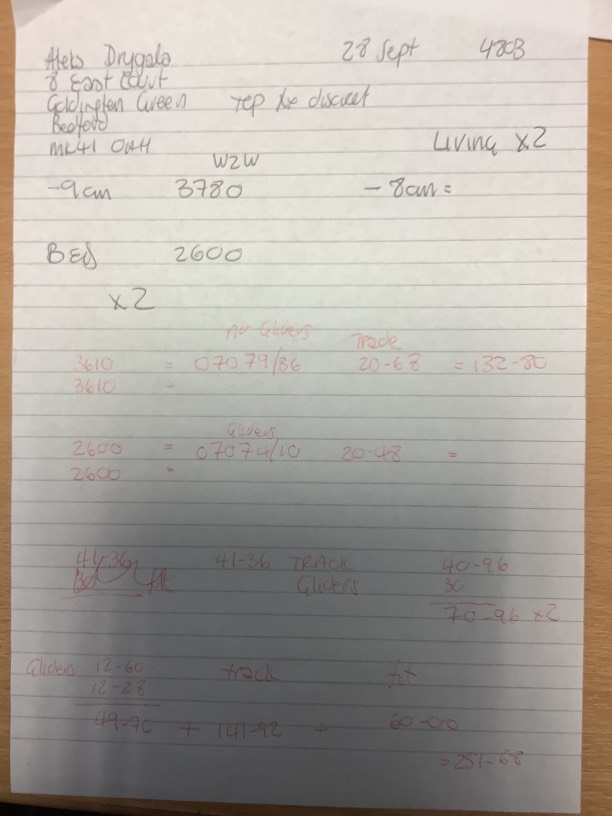 Aleks Drygala 28 Sept 480B
8 East Court
Goldington Green rep
Bedford
MK41 0AH Living x2
W2W
-9cm 3780 -8cm =
BED 2600
x2
no Gliders Track
3610 = 07079/36 20-68 = 132-80
3610 =
Gliders
2600 = 07074/10 20-48 =
2600 =
41-36 41-36 TRACK 40-96
Gliders 30
70-96 x2
Gliders 12-60 track fit
12-28
49-76 + 141-92 + 60-00
=251-68